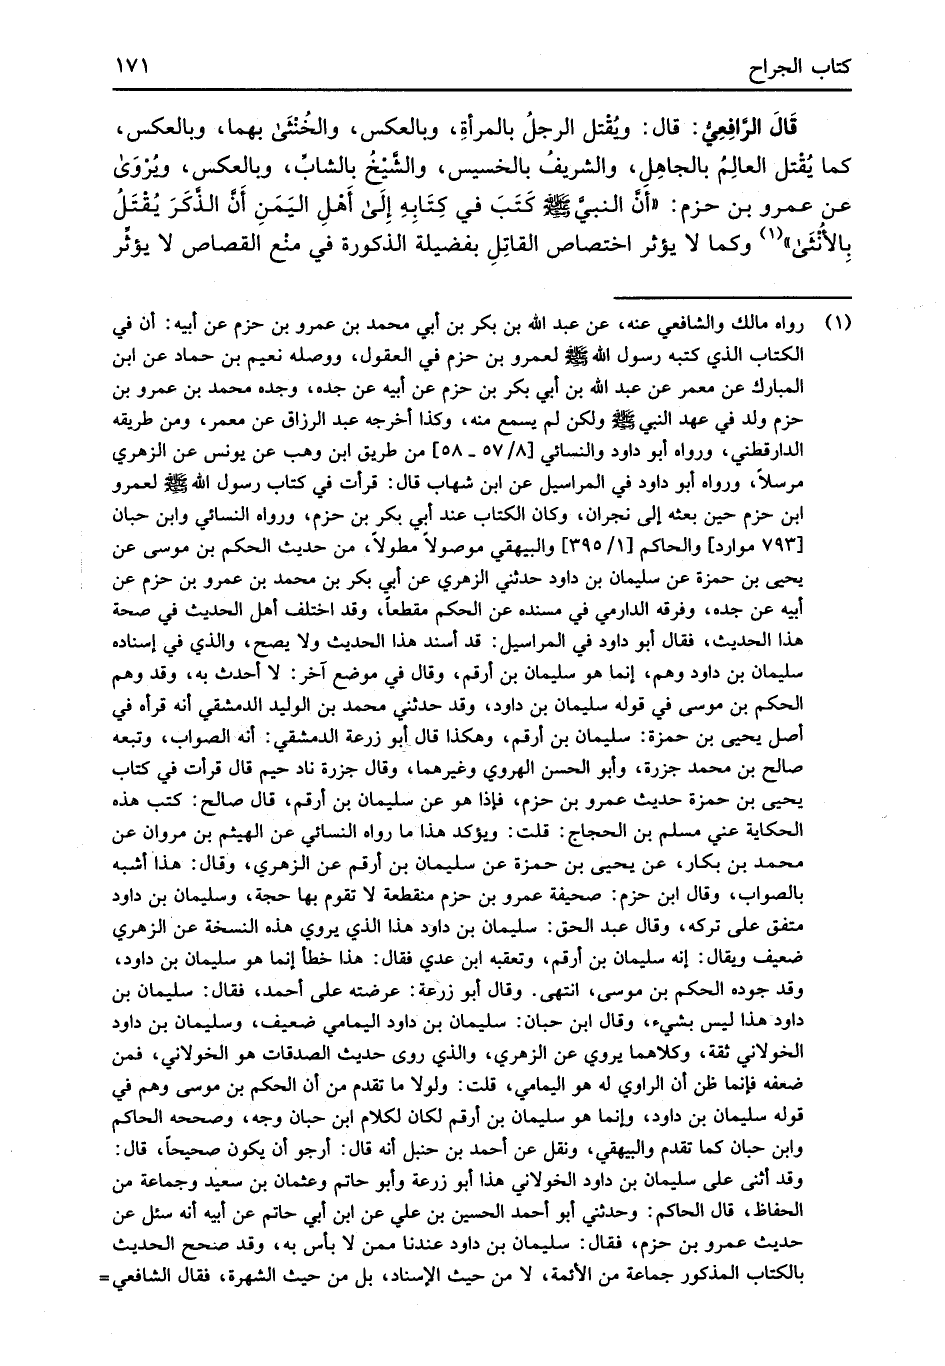 كتاب الجراح
١٧١
قَالَ الرَّافِعِيُّ: قال: ويُقْتل الرجلُ بالمرأةِ، وبالعكس، والخُنْثَىٰ بهما، وبالعكس،
كما يُقْتل العالِمُ بالجاهِلِ، والشريفُ بالخسيس، والشَّيْخُ بالشابِّ، وبالعكس، ويُرْوَىٰ
عن عمرو بن حزم: «أَنَّ النبيَّ ﷺ كَتَبَ في كِتَابِهِ إِلَىٰ أَهْلِ اليَمَنِ أَنَّ الذَّكَرَ يُقْتَلُ
بِالأُنْثَىٰ»(١) وكما لا يؤثر اختصاص القاتِلِ بفضيلة الذكورة في منْع القصاص لا يؤثِّر
(١) رواه مالك والشافعي عنه، عن عبد الله بن بكر بن أبي محمد بن عمرو بن حزم عن أبيه: أن في
الكتاب الذي كتبه رسول الله ﷺ لعمرو بن حزم في العقول، ووصله نعيم بن حماد عن ابن
المبارك عن معمر عن عبد الله بن أبي بكر بن حزم عن أبيه عن جده، وجده محمد بن عمرو بن
حزم ولد في عهد النبي ﷺ ولكن لم يسمع منه، وكذا أخرجه عبد الرزاق عن معمر، ومن طريقه
الدارقطني، ورواه أبو داود والنسائي [٨/ ٥٧ ـ ٥٨] من طريق ابن وهب عن يونس عن الزهري
مرسلاً، ورواه أبو داود في المراسيل عن ابن شهاب قال: قرأت في كتاب رسول الله ﷺ لعمرو
ابن حزم حين بعثه إلى نجران، وكان الكتاب عند أبي بكر بن حزم، ورواه النسائي وابن حبان
[٧٩٣ موارد] والحاكم [١/ ٣٩٥] والبيهقي موصولاً مطولاً، من حديث الحكم بن موسى عن
يحيى بن حمزة عن سليمان بن داود حدثني الزهري عن أبي بكر بن محمد بن عمرو بن حزم عن
أبيه عن جده، وفرقه الدارمي في مسنده عن الحكم مقطعاً، وقد اختلف أهل الحديث في صحة
هذا الحديث، فقال أبو داود في المراسيل: قد أسند هذا الحديث ولا يصح، والذي في إسناده
سليمان بن داود وهم، إنما هو سليمان بن أرقم، وقال في موضع آخر: لا أحدث به، وقد وهم
الحكم بن موسى في قوله سليمان بن داود، وقد حدثني محمد بن الوليد الدمشقي أنه قرأه في
أصل يحيى بن حمزة: سليمان بن أرقم، وهكذا قال أبو زرعة الدمشقي: أنه الصواب، وتبعه
صالح بن محمد جزرة، وأبو الحسن الهروي وغيرهما، وقال جزرة ناد حيم قال قرأت في كتاب
يحيى بن حمزة حديث عمرو بن حزم، فإذا هو عن سليمان بن أرقم، قال صالح: كتب هذه
الحكاية عني مسلم بن الحجاج: قلت: ويؤكد هذا ما رواه النسائي عن الهيثم بن مروان عن
محمد بن بكار، عن يحيى بن حمزة عن سليمان بن أرقم عن الزهري، وقال: هذا أشبه
بالصواب، وقال ابن حزم: صحيفة عمرو بن حزم منقطعة لا تقوم بها حجة، وسليمان بن داود
متفق على تركه، وقال عبد الحق: سليمان بن داود هذا الذي يروي هذه النسخة عن الزهري
ضعيف ويقال: إنه سليمان بن أرقم، وتعقبه ابن عدي فقال: هذا خطأ إنما هو سليمان بن داود،
وقد جوده الحكم بن موسى، انتهى. وقال أبو زرعة: عرضته على أحمد، فقال: سليمان بن
داود هذا ليس بشيء، وقال ابن حبان: سليمان بن داود اليمامي ضعيف، وسليمان بن داود
الخولاني ثقة، وكلاهما يروي عن الزهري، والذي روى حديث الصدقات هو الخولاني، فمن
ضعفه فإنما ظن أن الراوي له هو اليمامي، قلت: ولولا ما تقدم من أن الحكم بن موسى وهم في
قوله سليمان بن داود، وإنما هو سليمان بن أرقم لكان لكلام ابن حبان وجه، وصححه الحاكم
وابن حبان كما تقدم والبيهقي، ونقل عن أحمد بن حنبل أنه قال: أرجو أن يكون صحيحاً، قال:
وقد أثنى على سليمان بن داود الخولاني هذا أبو زرعة وأبو حاتم وعثمان بن سعيد وجماعة من
الحفاظ، قال الحاكم: وحدثني أبو أحمد الحسين بن علي عن ابن أبي حاتم عن أبيه أنه سئل عن
حديث عمرو بن حزم، فقال: سليمان بن داود عندنا ممن لا بأس به، وقد صحح الحديث
بالكتاب المذكور جماعة من الأئمة، لا من حيث الإسناد، بل من حيث الشهرة، فقال الشافعي=